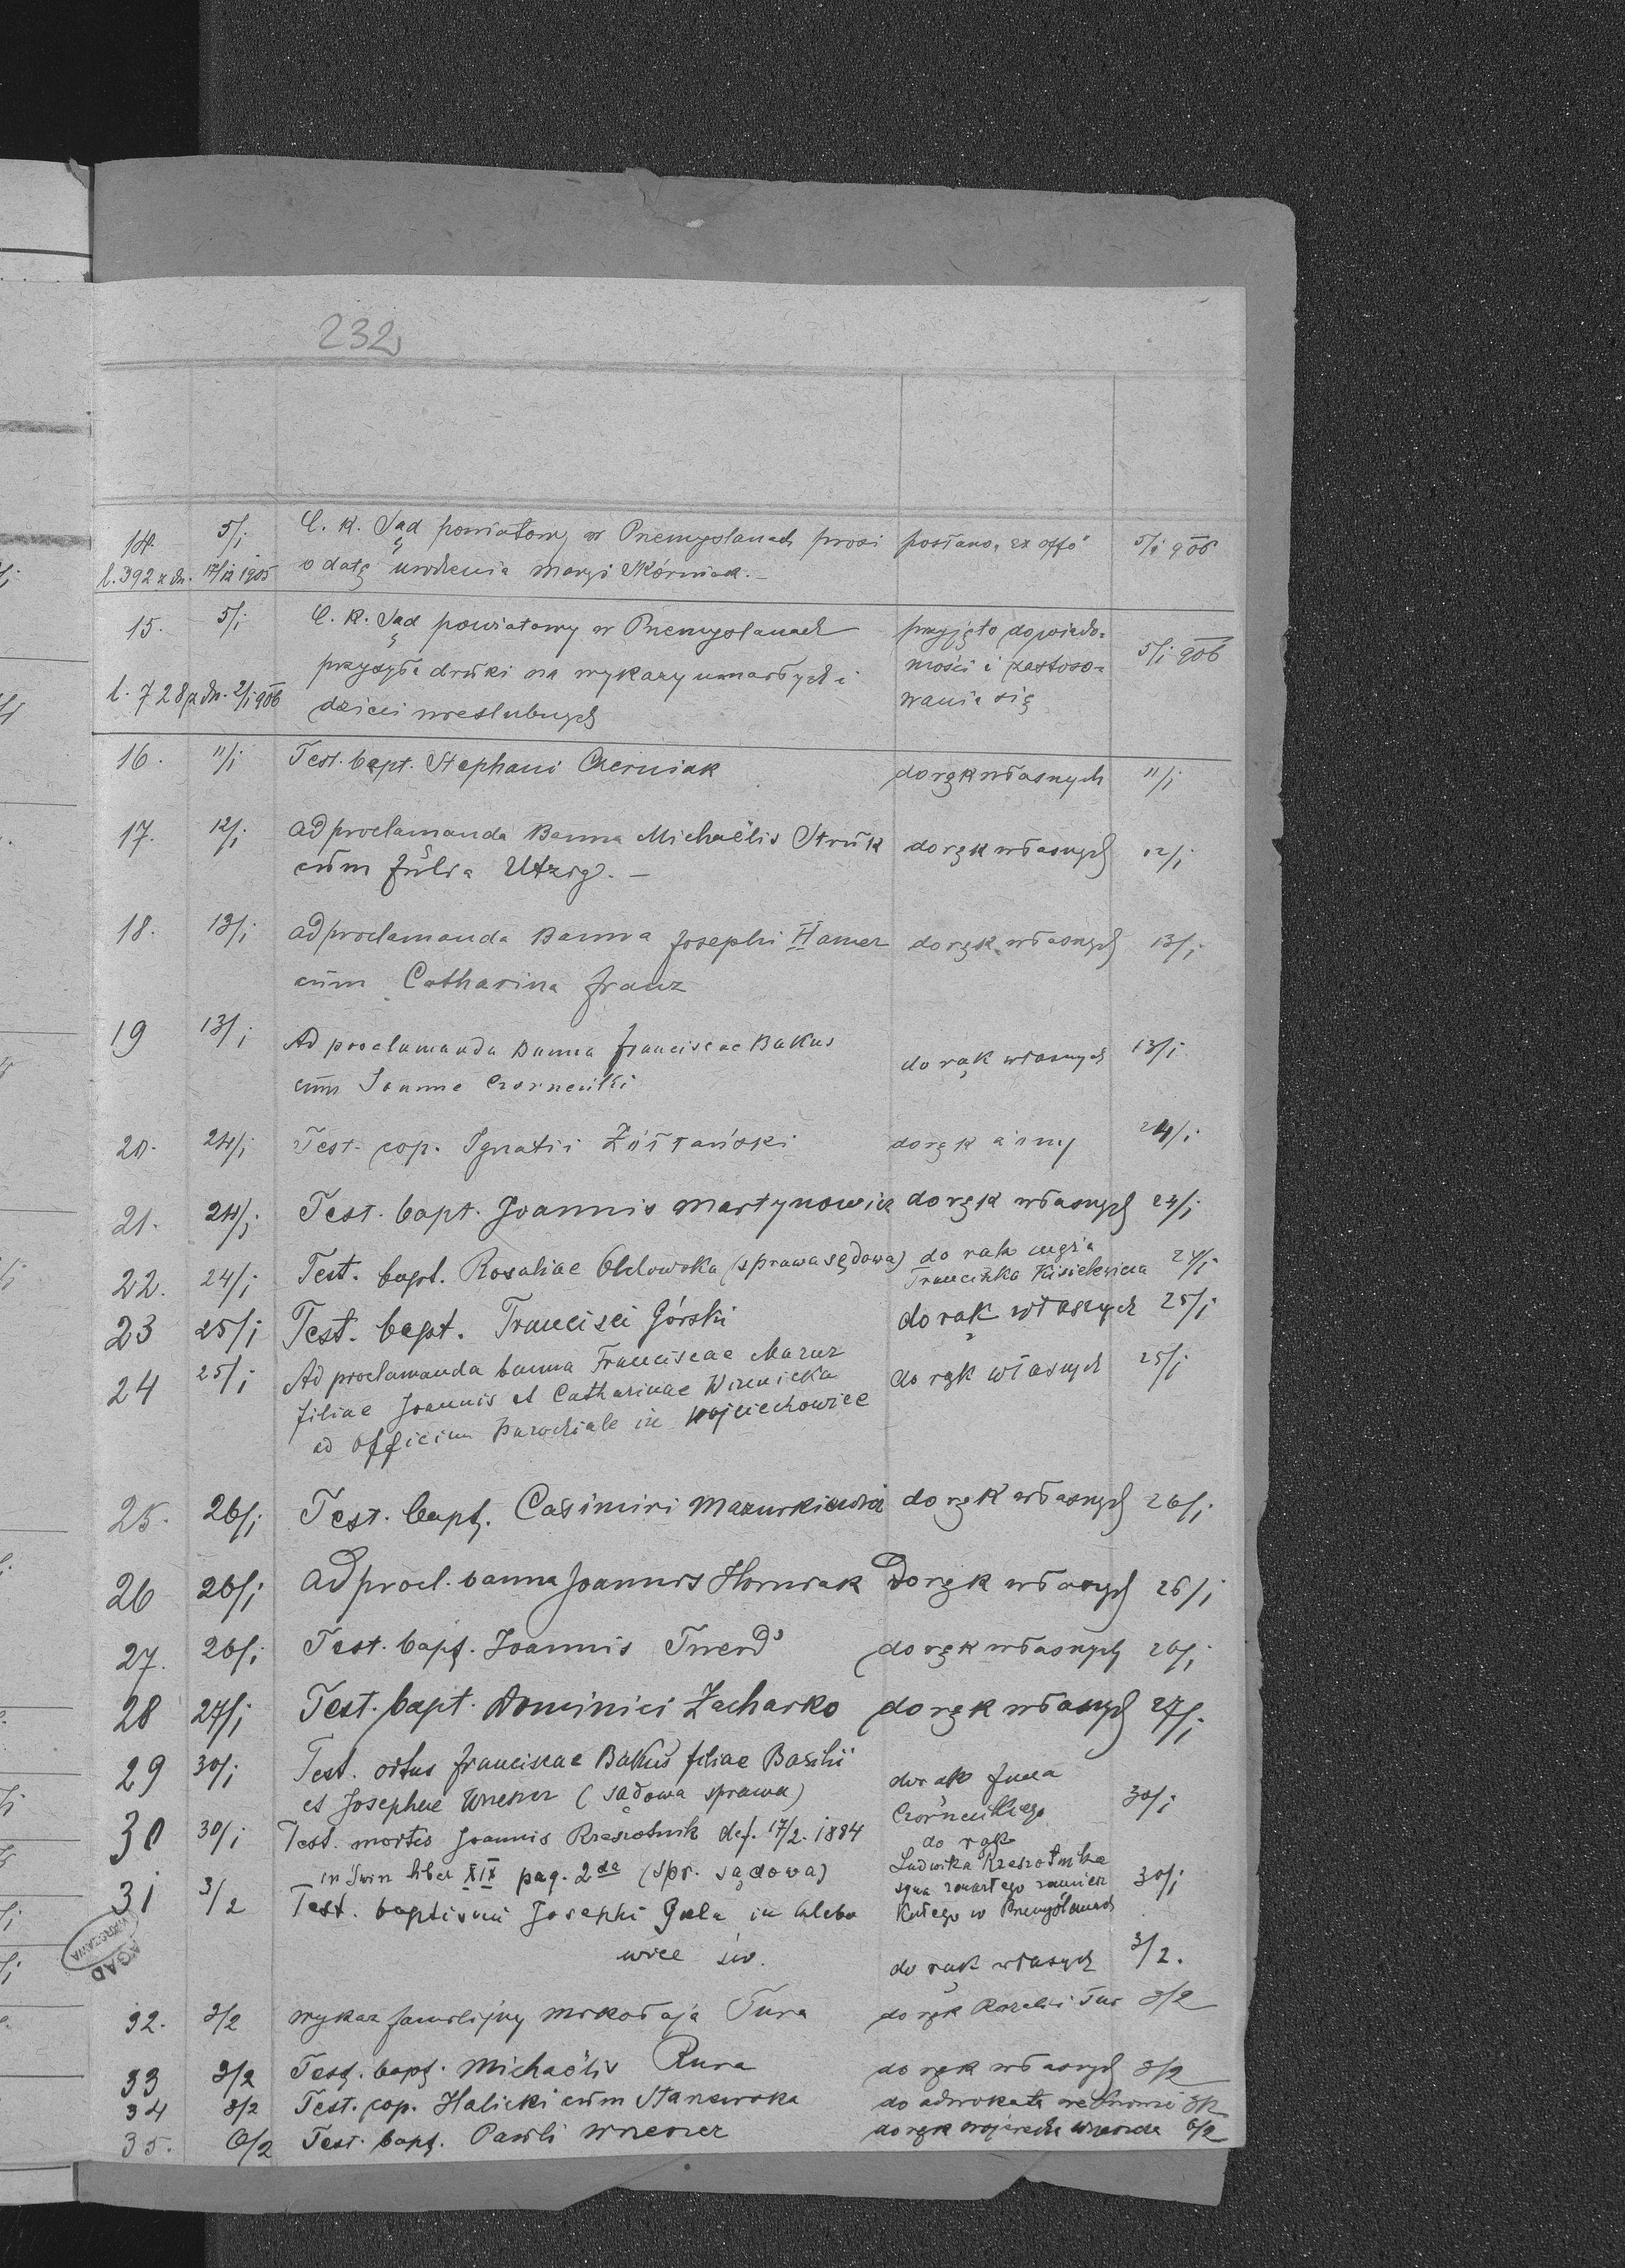 232
14. 5/i C. K. Sąd powiatowy w Przemyslanach prosi posłano, ex offo 5/i 906
l. 392 z dn. 17/ix 1905 o datę urodzenia Maryi Skórniak.—
15. 5/i C. K. Sąd powiatowy w Przemyslanach przyjęto do wiado-
przysyła druki na wykazy umarłych i mości i zastoso- 5/i 906
l. 728 z dn. 2/i 906 dzieci nieslubnych wania się
16. 11/i Test. bapt. Stephani Czerniak do rąk własnych 11/i
17. 12/i ad proclamanda Banna Michaëlis Struk do rąk własnych 12/i
cum Julia Utzig.—
18. 13/i ad proclamanda Banna Josephi Hamer do rąk własnych 13/i
cum Catharina Franz
19 13/i Ad proclamanda banna Franciscae Bakus do rąk własnych 13/i
cum Joanne Czornenki
20. 24/i Test. cop. Ignatii Żółtański do rąk 24/i
21. 24/i Test. bapt. Joannis Martynowicz do rąk własnych 24/i
22. 24/i Test. bapt. Rosaliae (sprawa sądowa) do rąk męża
Franciszka Kisielewicza 24/i
23 25/i Test. bapt. Francisci Górski do rąk własnych 25/i
24 25/i Ad proclamanda banna Franciscae Mazur do rąk własnych 25/i
filiae Joannis et Catharinae
ad Officium Parochiale in Wojciechowice
25. 26/i Test. bapt. Casimiri Mazurkiewicz do rąk własnych 26/i
26 26/i ad procl. banna Joannis Horniak Do rąk własnych 26/i
27. 26/i Test. bapt. Joannis Twerd do rąk własnych 26/i
28 27/i Test. bapt. Dominici Zacharko do rąk własnych 27/i
29 30/i Test. ortus Franciscae Bakus filiae Basilii do rąk Jana
et Josephae Wrzeszcz (sądowa sprawa) Czorneńkiego 30/i
30 30/i Test. mortis Joannis Rzeszotnik def. 17/2. 1884 do rąk
in Świrz liber XIX pag. 2da (spr. sądowa) Ludwika Rzeszotnika
syna zmarłego 30/i
31 3/2 Test. baptismi Josephi Gula in Chlebo w Przemyślanach
wice św. do rąk własnych 3/2.
32. 3/2 wykaz familijny Mikołaja Tura do rąk Rozalii Tur 3/2
33 3/2 Test. bapt. Michaëlis Rura do rąk własnych 3/2
34 3/2 Test. cop. Halicki cum Stanewska do adwokata 3/2
35. 6/2 Test. bapt. Pauli Wrzeszcz do rąk Wojciecha Wrzeszcza 6/2
AGAD
WARSZAWA